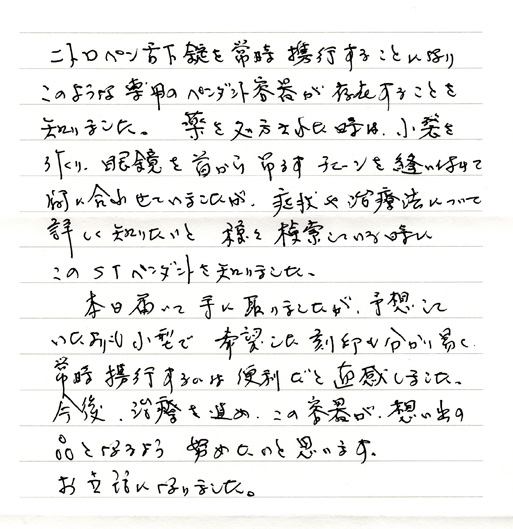 ニトロペン舌下錠を常時携行することになり
このような専用のペンダント容器が存在することを
知りました。 薬を処方された時は、小袋を
作り、眼鏡を首から吊るすチェーンを縫い付けて
間に合わせていましたが、症状や治療法について
詳しく知りたいと 様々検索している時に
このSTペンダントを知りました。
本日届いて手に取りましたが、予想して
いたよりも小型で 希望した刻印も分かり易く
常時携行するのは便利だと直感しました。
今後、治療を進め、この容器が、想い出の
品となるよう 努めたいと思います。
お世話になりました。